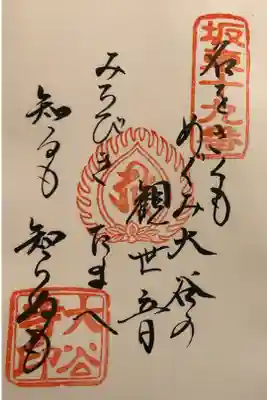 坂東十九番
名をきくも
めぐみ大谷の
観世音
みちびき
たまへ
知るも
知らぬも
大谷寺印